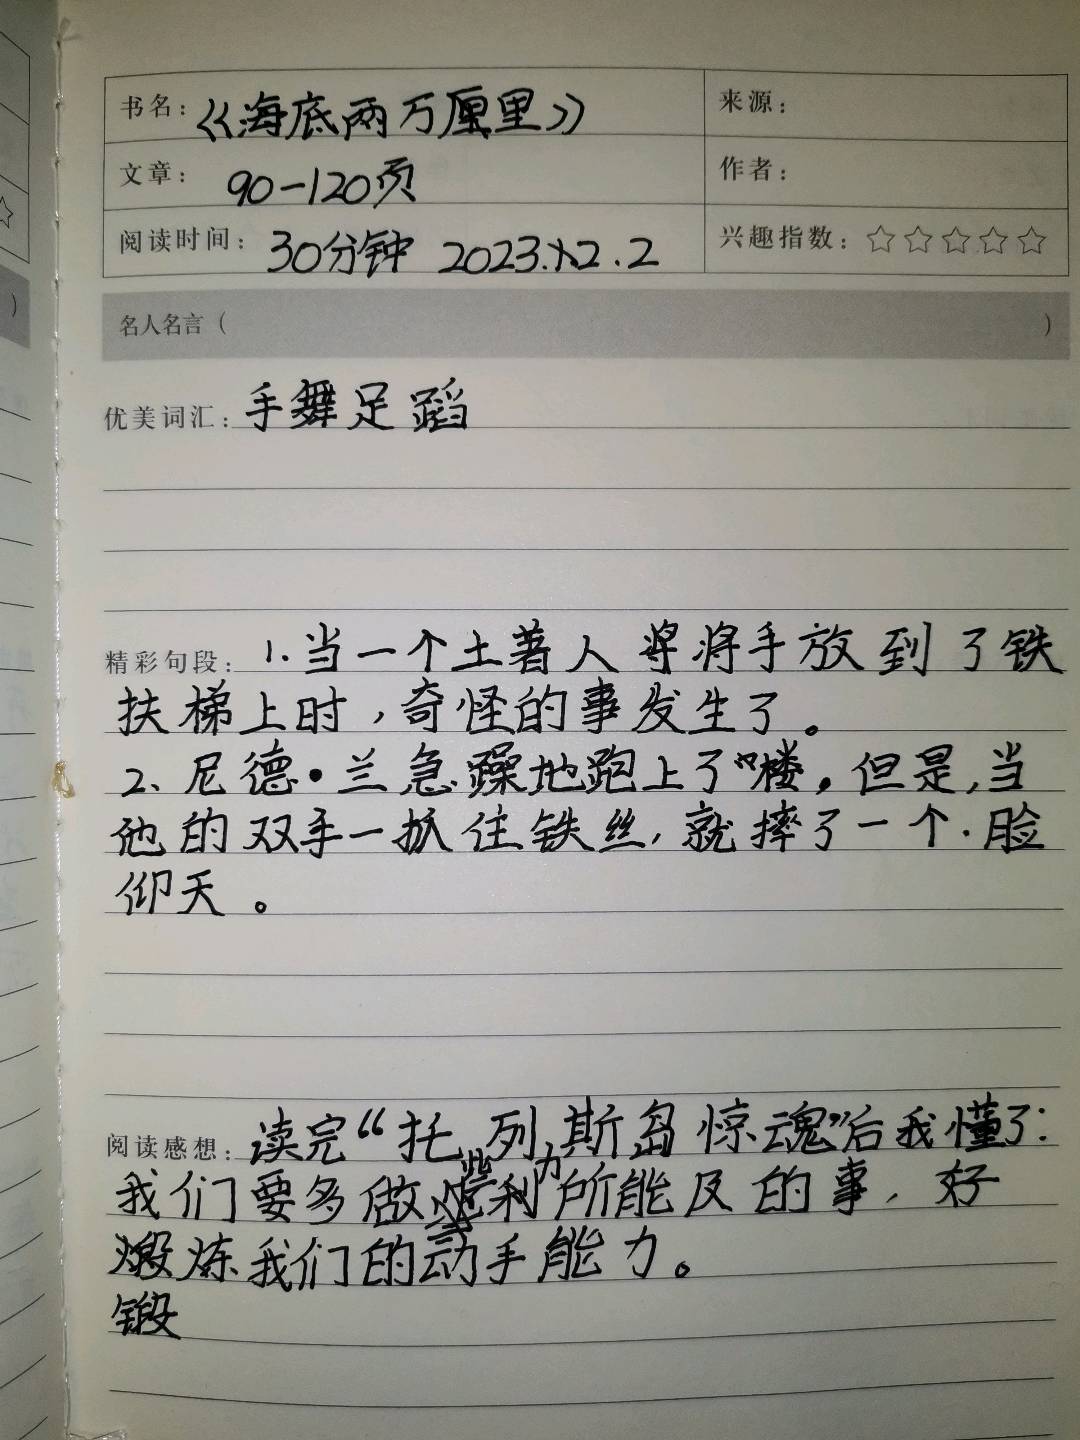 书名：《海底两万厘里》 来源：
文章： 90-120页 作者：
阅读时间： 30分钟 2023.12.2 兴趣指数：☆☆☆☆☆
名人名言（ ）
优美词汇：手舞足蹈
精彩句段： 1.当一个土著人 将手放到了铁
扶梯上时，奇怪的事发生了。
2、尼德·兰急躁地跑上了“楼。但是，当
他的双手一抓住铁丝，就摔了一个·脸
仰天。
阅读感想： 读完“托列斯岛惊魂”后我懂了：
些 力
我们要多做 所能及的事，好
煅炼我们的动手能力。
锻
）